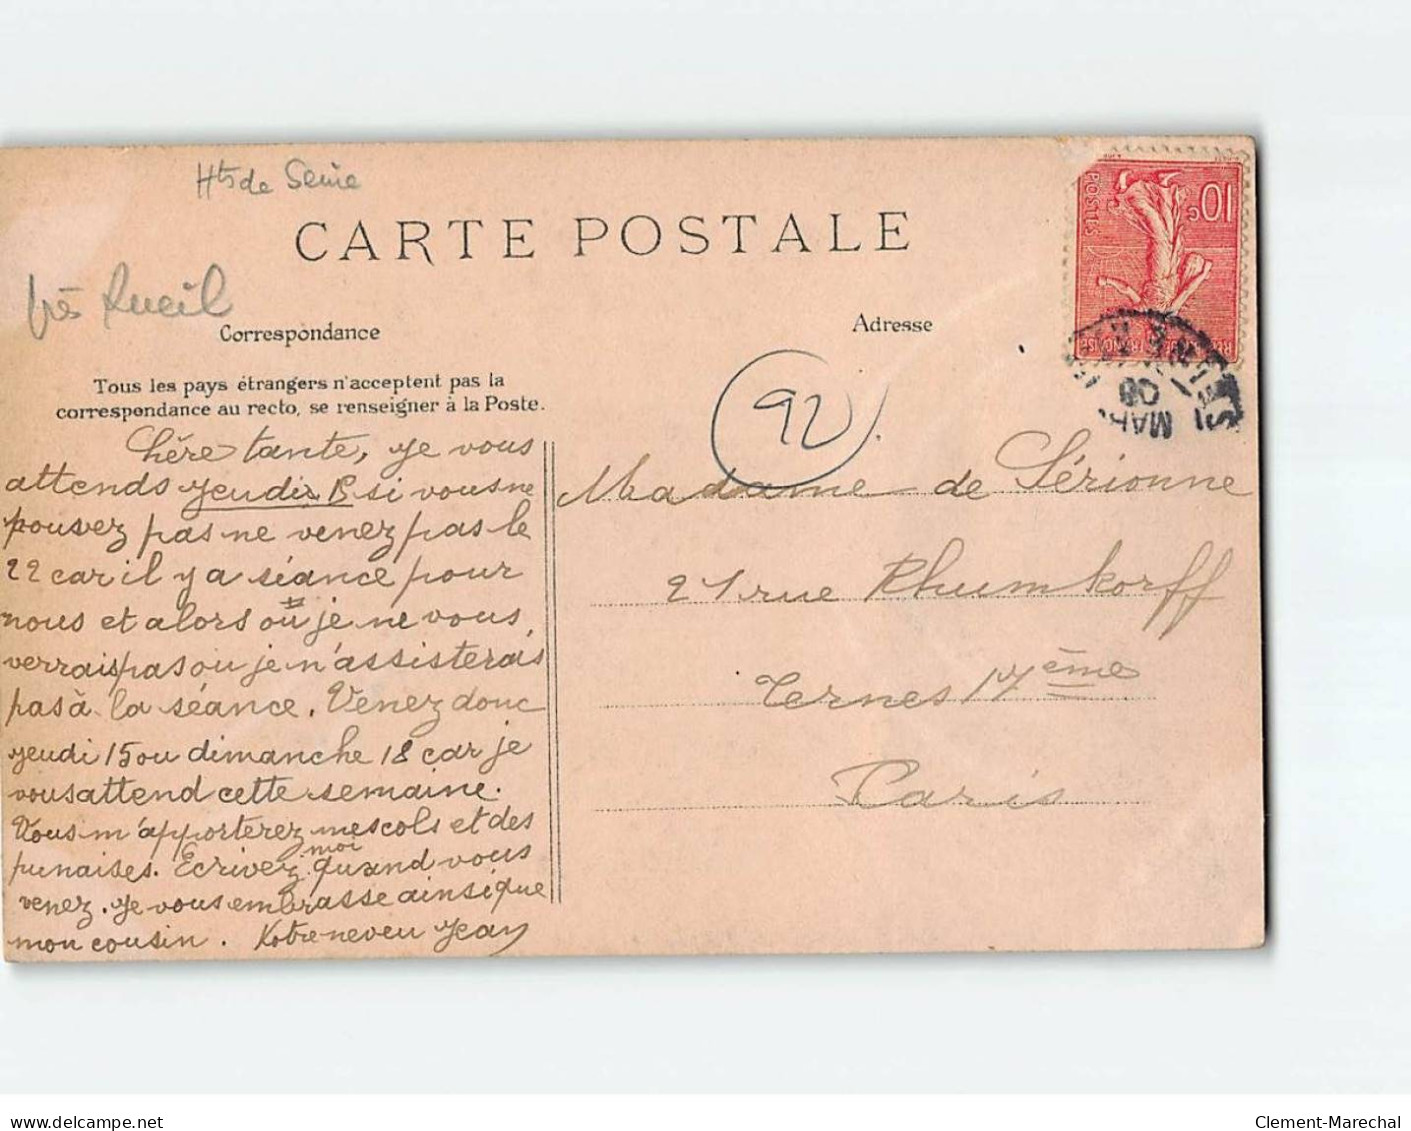 Hts de Seine
CARTE POSTALE
près Rueil
Correspondance
Tous les pays étrangers n'acceptent pas la
correspondance au recto, se renseigner à la Poste.
Chère tante, je vous
attends jeudi si vous ne
pouvez pas ne venez pas le
22 car il y a séance pour
nous et alors où je ne vous
verrais pas ou je n'assisterais
pas à la séance. Venez donc
jeudi 15 ou dimanche 18 car je
vous attend cette semaine.
Vous m'apporterez mes cols et des
punaises. Ecrivez moi quand vous
venez. Je vous embrasse ainsi que
mon cousin. Votre neveu Jean
Adresse
10c
POSTES
FRANÇAISE
MAR
06
92
Madame de Sérionne
21 rue Rhumkorff
Ternes 17ème
Paris
delcampe.net
Clement-Marechal